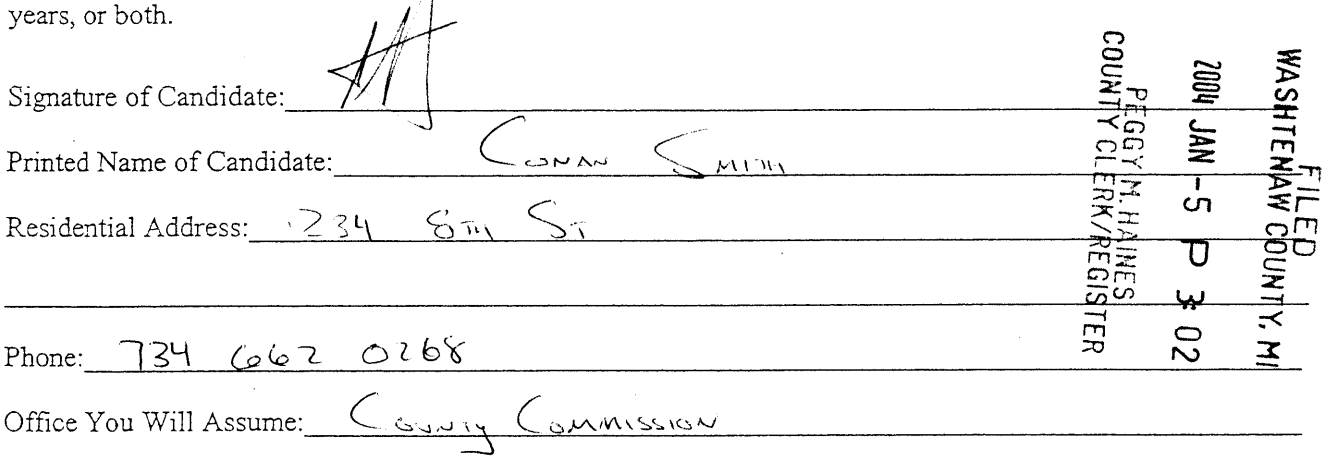 years, or both.
Signature of Candidate:
Printed Name of Candidate: Conan Smith
Residential Address: 234 8th St
Phone: 734 662 0268
Office You Will Assume: County Commission
FILED
WASHTENAW COUNTY, MI
2004 JAN -5 P 3:02
PEGGY M. HAINES
COUNTY CLERK/REGISTER